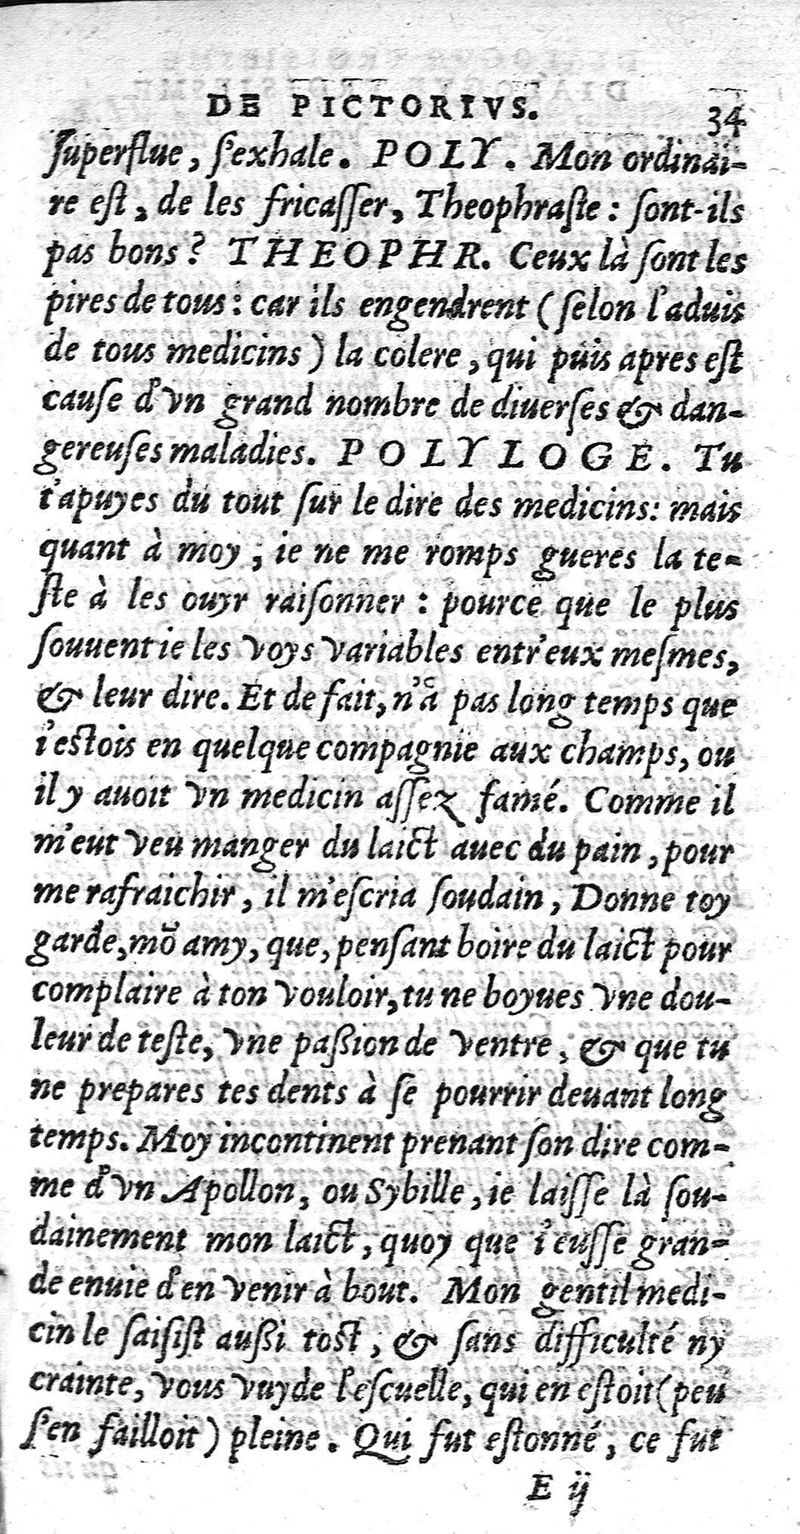 DE PICTORIVS. 34
ſuperflue, ſ'exhale. POLY. Mon ordinai-
re eſt, de les fricaſſer, Theophraſte : ſont-ils
pas bons? THEOPHR. Ceux là ſont les
pires de tous : car ils engendrent (ſelon l'aduis
de tous medicins) la colere, qui puis apres eſt
cauſe d'vn grand nombre de diuerſes & dan-
gereuſes maladies. POLYLOGE. Tu
t'apuyes du tout ſur le dire des medicins: mais
quant à moy, ie ne me romps gueres la te-
ſte à les ouyr raiſonner : pource que le plus
ſouuent ie les voys variables entr'eux meſmes,
& leur dire. Et de fait, n'à pas long temps que
i'eſtois en quelque compagnie aux champs, ou
il y auoit vn medicin aſſez famé. Comme il
m'eut veu manger du laict auec du pain, pour
me rafraichir, il m'eſcria ſoudain, Donne toy
garde, mõ amy, que, penſant boire du laict pour
complaire à ton vouloir, tu ne boyues vne dou-
leur de teſte, vne paßion de ventre, & que tu
ne prepares tes dents à ſe pourrir deuant long
temps. Moy incontinent prenant ſon dire com-
me d'vn Apollon, ou Sybille, ie laiſſe là ſou-
dainement mon laict, quoy que i'euſſe gran-
de enuie d'en venir à bout. Mon gentil medi-
cin le ſaiſiſt außi toſt, & ſans difficulté ny
crainte, vous vuyde l'eſcuelle, qui en eſtoit (peu
ſ'en failloit) pleine. Qui fut eſtonné, ce fut
E ij